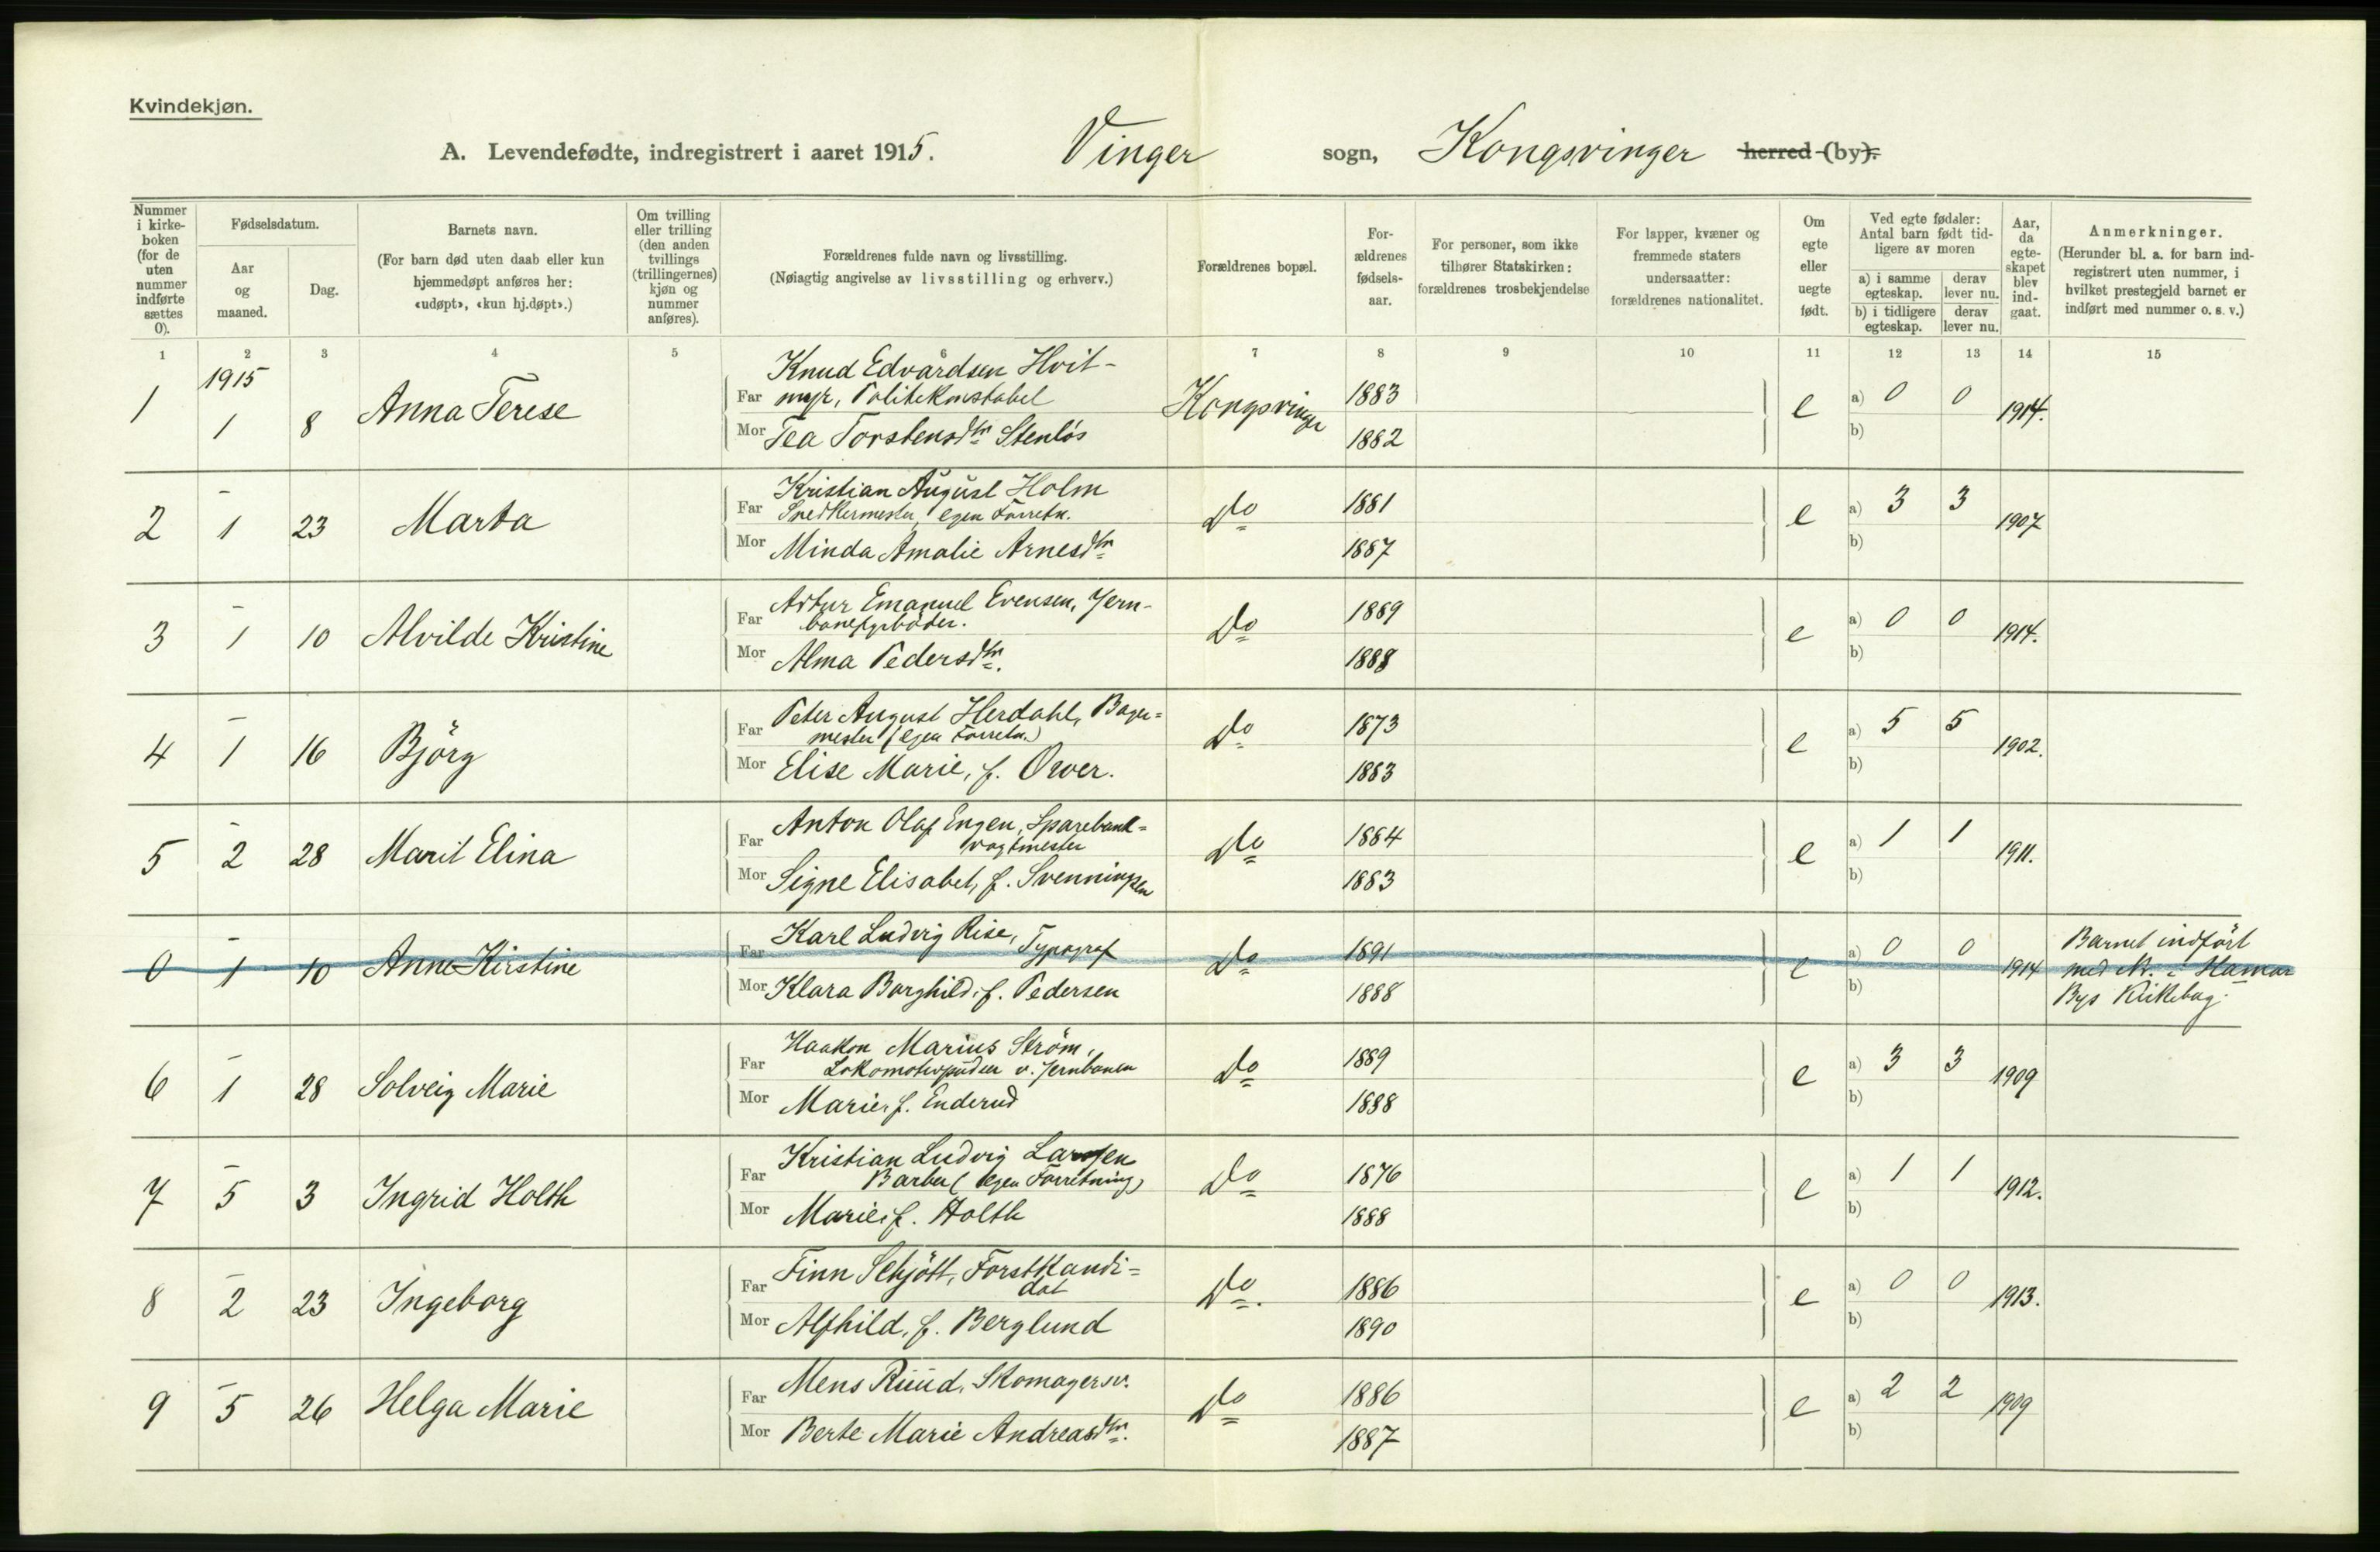 Kvindekjøn.
A. Levendefødte, indregistrert i aaret 1915. Vinger sogn, Kongsvinger herred (by).
Nummer i kirkeboken (for de uten nummer indførte sættes 0).
Fødselsdatum.
Aar og maaned.
Dag.
Barnets navn.
(For barn død uten daab eller kun hjemmedøpt anføres her: «udøpt», «kun hj.døpt».)
Om tvilling eller trilling (den anden tvillings (trillingernes) kjøn og nummer anføres).
Forældrenes fulde navn og livsstilling.
(Nøiagtig angivelse av livsstilling og erhverv.)
Forældrenes bopæl.
For-ældrenes fødsels-aar.
For personer, som ikke tilhører Statskirken: forældrenes trosbekjendelse
For lapper, kvæner og fremmede staters undersaatter: forældrenes nationalitet.
Om egte eller uegte født.
Ved egte fødsler: Antal barn født tidligere av moren
a) i samme egteskap. derav lever nu.
b) i tidligere egteskap. derav lever nu.
Aar, da egteskapet blev indgaat.
Anmerkninger.
(Herunder bl. a. for barn indregistrert uten nummer, i hvilket prestegjeld barnet er indført med nummer o. s. v.)
1 2 3 4 5 6 7 8 9 10 11 12 13 14 15
1915
Knud Edvardsen Hvit-
1 1 8 Anna Terese Far myr, Politikonstabel Kongsvinger 1883 e a) 0 0 1914.
Mor Tea Torstensdtr Stenløs 1882 b)
Kristian August Holm
2 1 23 Marta Far Snedkermester, egen Forretn. Do 1881 e a) 3 3 1907
Mor Minda Amalie Arnesdtr 1887 b)
Artur Emanuel Evensen, Jern-
3 1 10 Alvilde Kristine Far Do 1889 e a) 0 0 1914.
Mor Alma Pedersdtr. 1888 b)
Peter August Herdahl, Bager=
4 1 16 Björg Far mester (egen Forretn.) Do 1873 e a) 5 5 1902.
Mor Elise Marie, f. 1883 b)
Anton Olaf Engen, Sparebank=
5 2 28 Marit Elina Far vagtmester Do 1884 e a) 1 1 1911.
Mor Signe Elisabet, f. Svenningsen 1883 b)
Karl Ludvig Rise, Typograf
0 1 10 Anne Kirstine Far Do 1891 e a) 0 0 1914 Barnet indført med Nr. i Hamar Bys Kirkebog.
Mor Klara Borghild, f. Pedersen 1888 b)
Haakon Marius Ström,
6 1 28 Solveig Marie Far Lokomotivpudser v. Jernbanen Do 1889 e a) 3 3 1909
Mor Marie, f. Enderud 1888 b)
Kristian Ludvig Larsen
7 5 3 Ingrid Holth Far Barber (egen Forretning) Do 1876 e a) 1 1 1912.
Mor Marie, f. Holth 1888 b)
Finn Schjött, Forstkandi=
8 2 23 Ingeborg Far dat Do. 1886 e a) 0 0 1913.
Mor Alfhild, f. Berglund 1890 b)
9 5 26 Helga Marie Far Mens Ruud, Skomagersv. Do 1886 e a) 2 2 1909
Mor Berte Marie Andreasdtr. 1887 b)